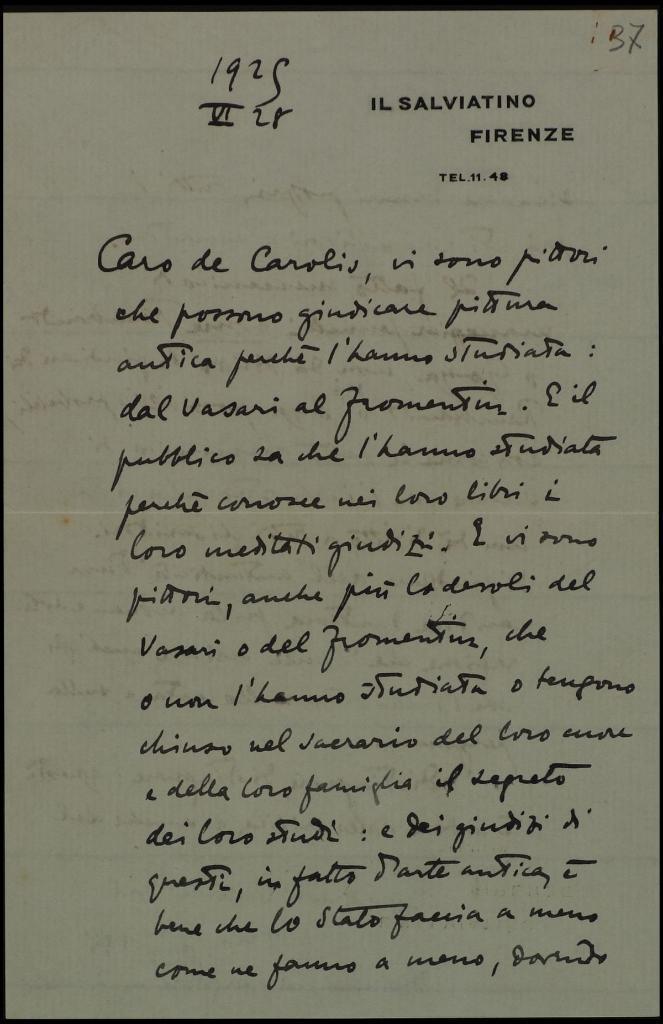 37
1925
VI 28
IL SALVIATINO
FIRENZE
TEL.11.48
Caro de Carolis, vi sono pittori
che possono giudicare pittura
antica perchè l'hanno studiata:
dal Vasari al Fromentin. E il
pubblico sa che l'hanno studiata
perchè conosce nei loro libri i
loro meditati giudizi. E vi sono
pittori, anche più lodevoli del
Vasari o del Fromentin, che
o non l'hanno studiata o tengono
chiuso nel sacrario del loro cuore
e della loro famiglia il segreto
dei loro studi: e dei giudizi di
questi, in fatto d'arte antica, è
bene che lo Stato faccia a meno
come ne fanno a meno, dovendo